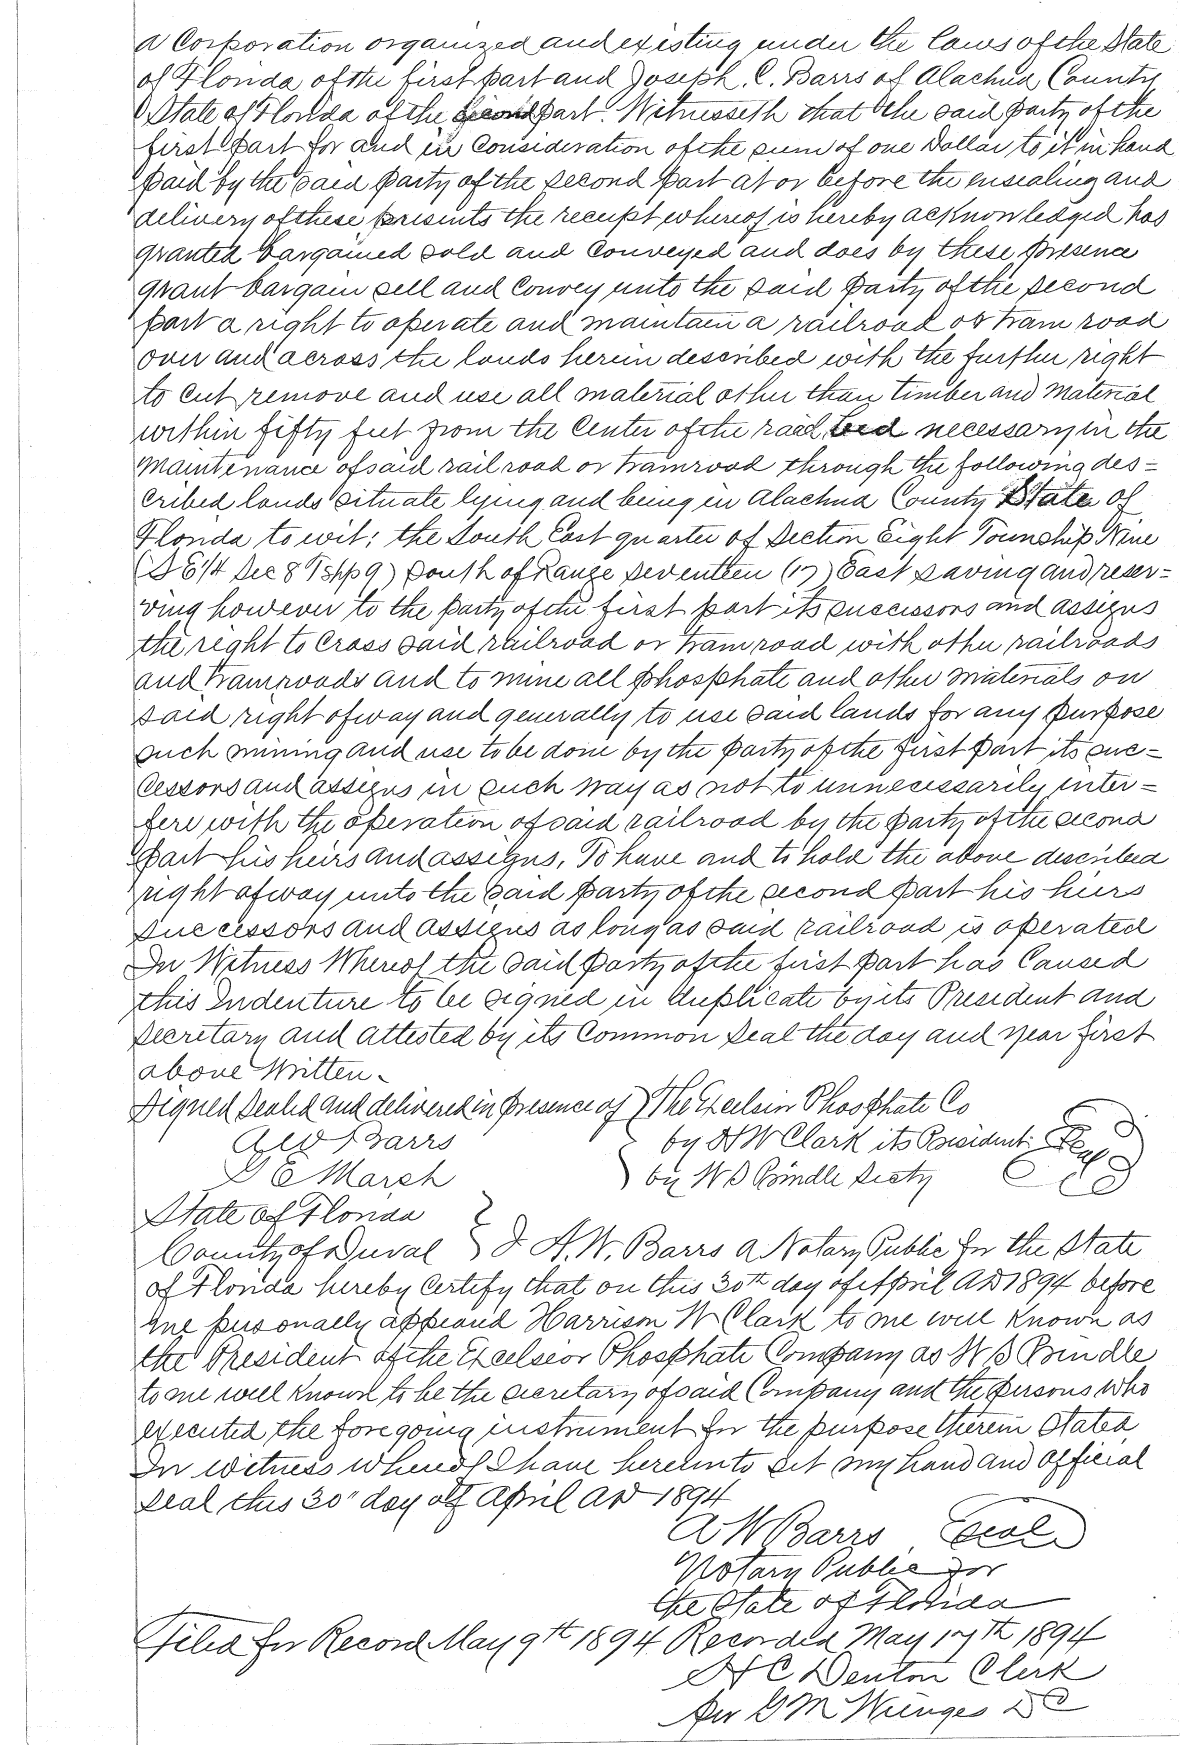 a Corporation organized and existing under the laws of the State
of Florida of the first part and Joseph. C. Barrs of Alachua County
State of Florida of the second part. Witnesseth that the said party of the
first part for and in consideration of the sum of one Dollar to it in hand
paid by the said party of the second part at or before the ensealing and
delivery of these presents the receipt whereof is hereby acknowledged has
granted bargained sold and conveyed and does by these presence
grant bargain sell and convey unto the said party of the second
part a right to operate and maintain a railroad or tram road
over and across the lands herein described with the further right
to cut remove and use all material other than timber and material
within fifty feet from the center of the road bed necessary in the
maintenance of said railroad or tramroad through the following des=
cribed lands situate lying and being in Alachua County State of
Florida to wit; the South East quarter of Section Eight Township Nine
(S E 1/4 Sec 8 Tshp 9) South of Range seventeen (17) East saving and reser=
ving however to the party of the first part its successors and assigns
the right to cross said railroad or tramroad with other railroads
and tramroads and to mine all phosphate and other materials on
said right of way and generally to use said lands for any purpose
such mining and use to be done by the party of the first part its suc=
cessors and assigns in such way as not to unnecessarily inter=
fere with the operation of said railroad by the party of the second
part his heirs and assigns. To have and to hold the above described
right of way unto the said party of the second part his heirs
successors and assigns as long as said railroad is operated
In Witness Whereof the said party of the first part has caused
this Indenture to be signed in duplicate by its President and
Secretary and attested by its Common Seal the day and year first
above Written.
Signed Sealed and delivered in presence of } The Excelsior Phosphate Co
A W Barrs } by H W Clark its President. Seal
G E Marsh } by W S Brindle Secty
State of Florida }
County of Duval } I A. W. Barrs a Notary Public for the State
of Florida hereby certify that on this 30th day of April AD 1894 before
me personally appeared Harrison W Clark to me well known as
the President of the Excelsior Phosphate Company as W S Brindle
to me well known to be the secretary of said Company and the persons who
executed the foregoing instrument for the purpose therein stated
In witness whereof I have hereunto set my hand and official
seal this 30" day of April AD 1894
A W Barrs Seal
Notary Public for
the State of Florida
Filed for Record May 9th 1894. Recorded May 17th 1894
H C Denton Clerk
per G M Wienges D C